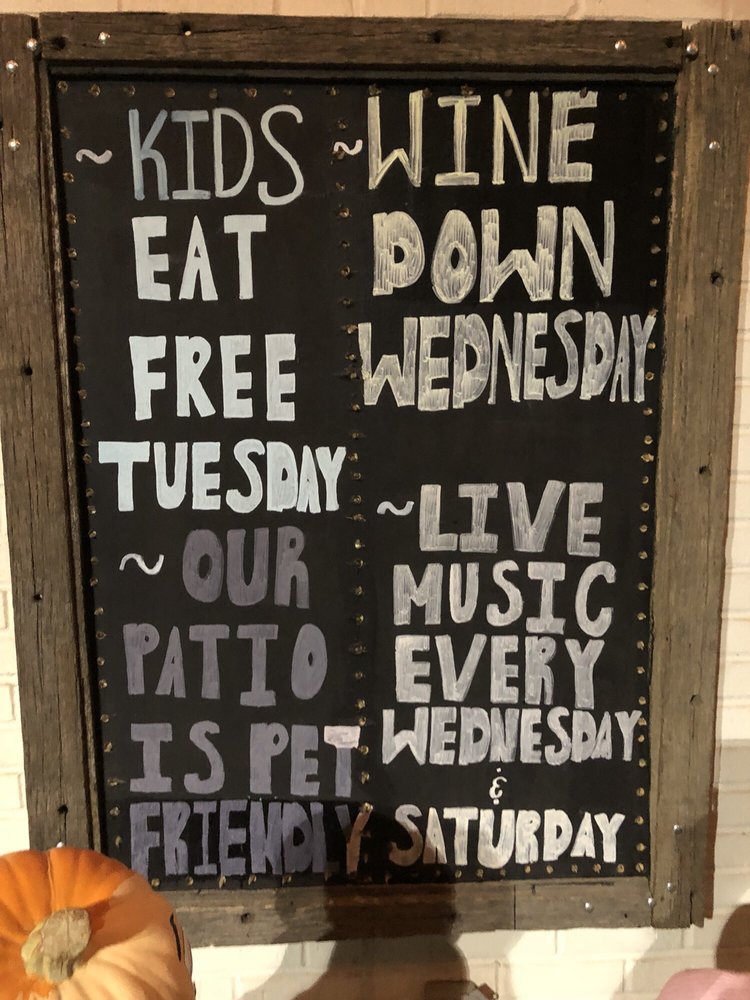 ~KIDS
EAT
FREE
TUESDAY
~OUR
PATIO
IS PET
FRIENDLY
~WINE
DOWN
WEDNESDAY
~LIVE
MUSIC
EVERY
WEDNESDAY
&
SATURDAY